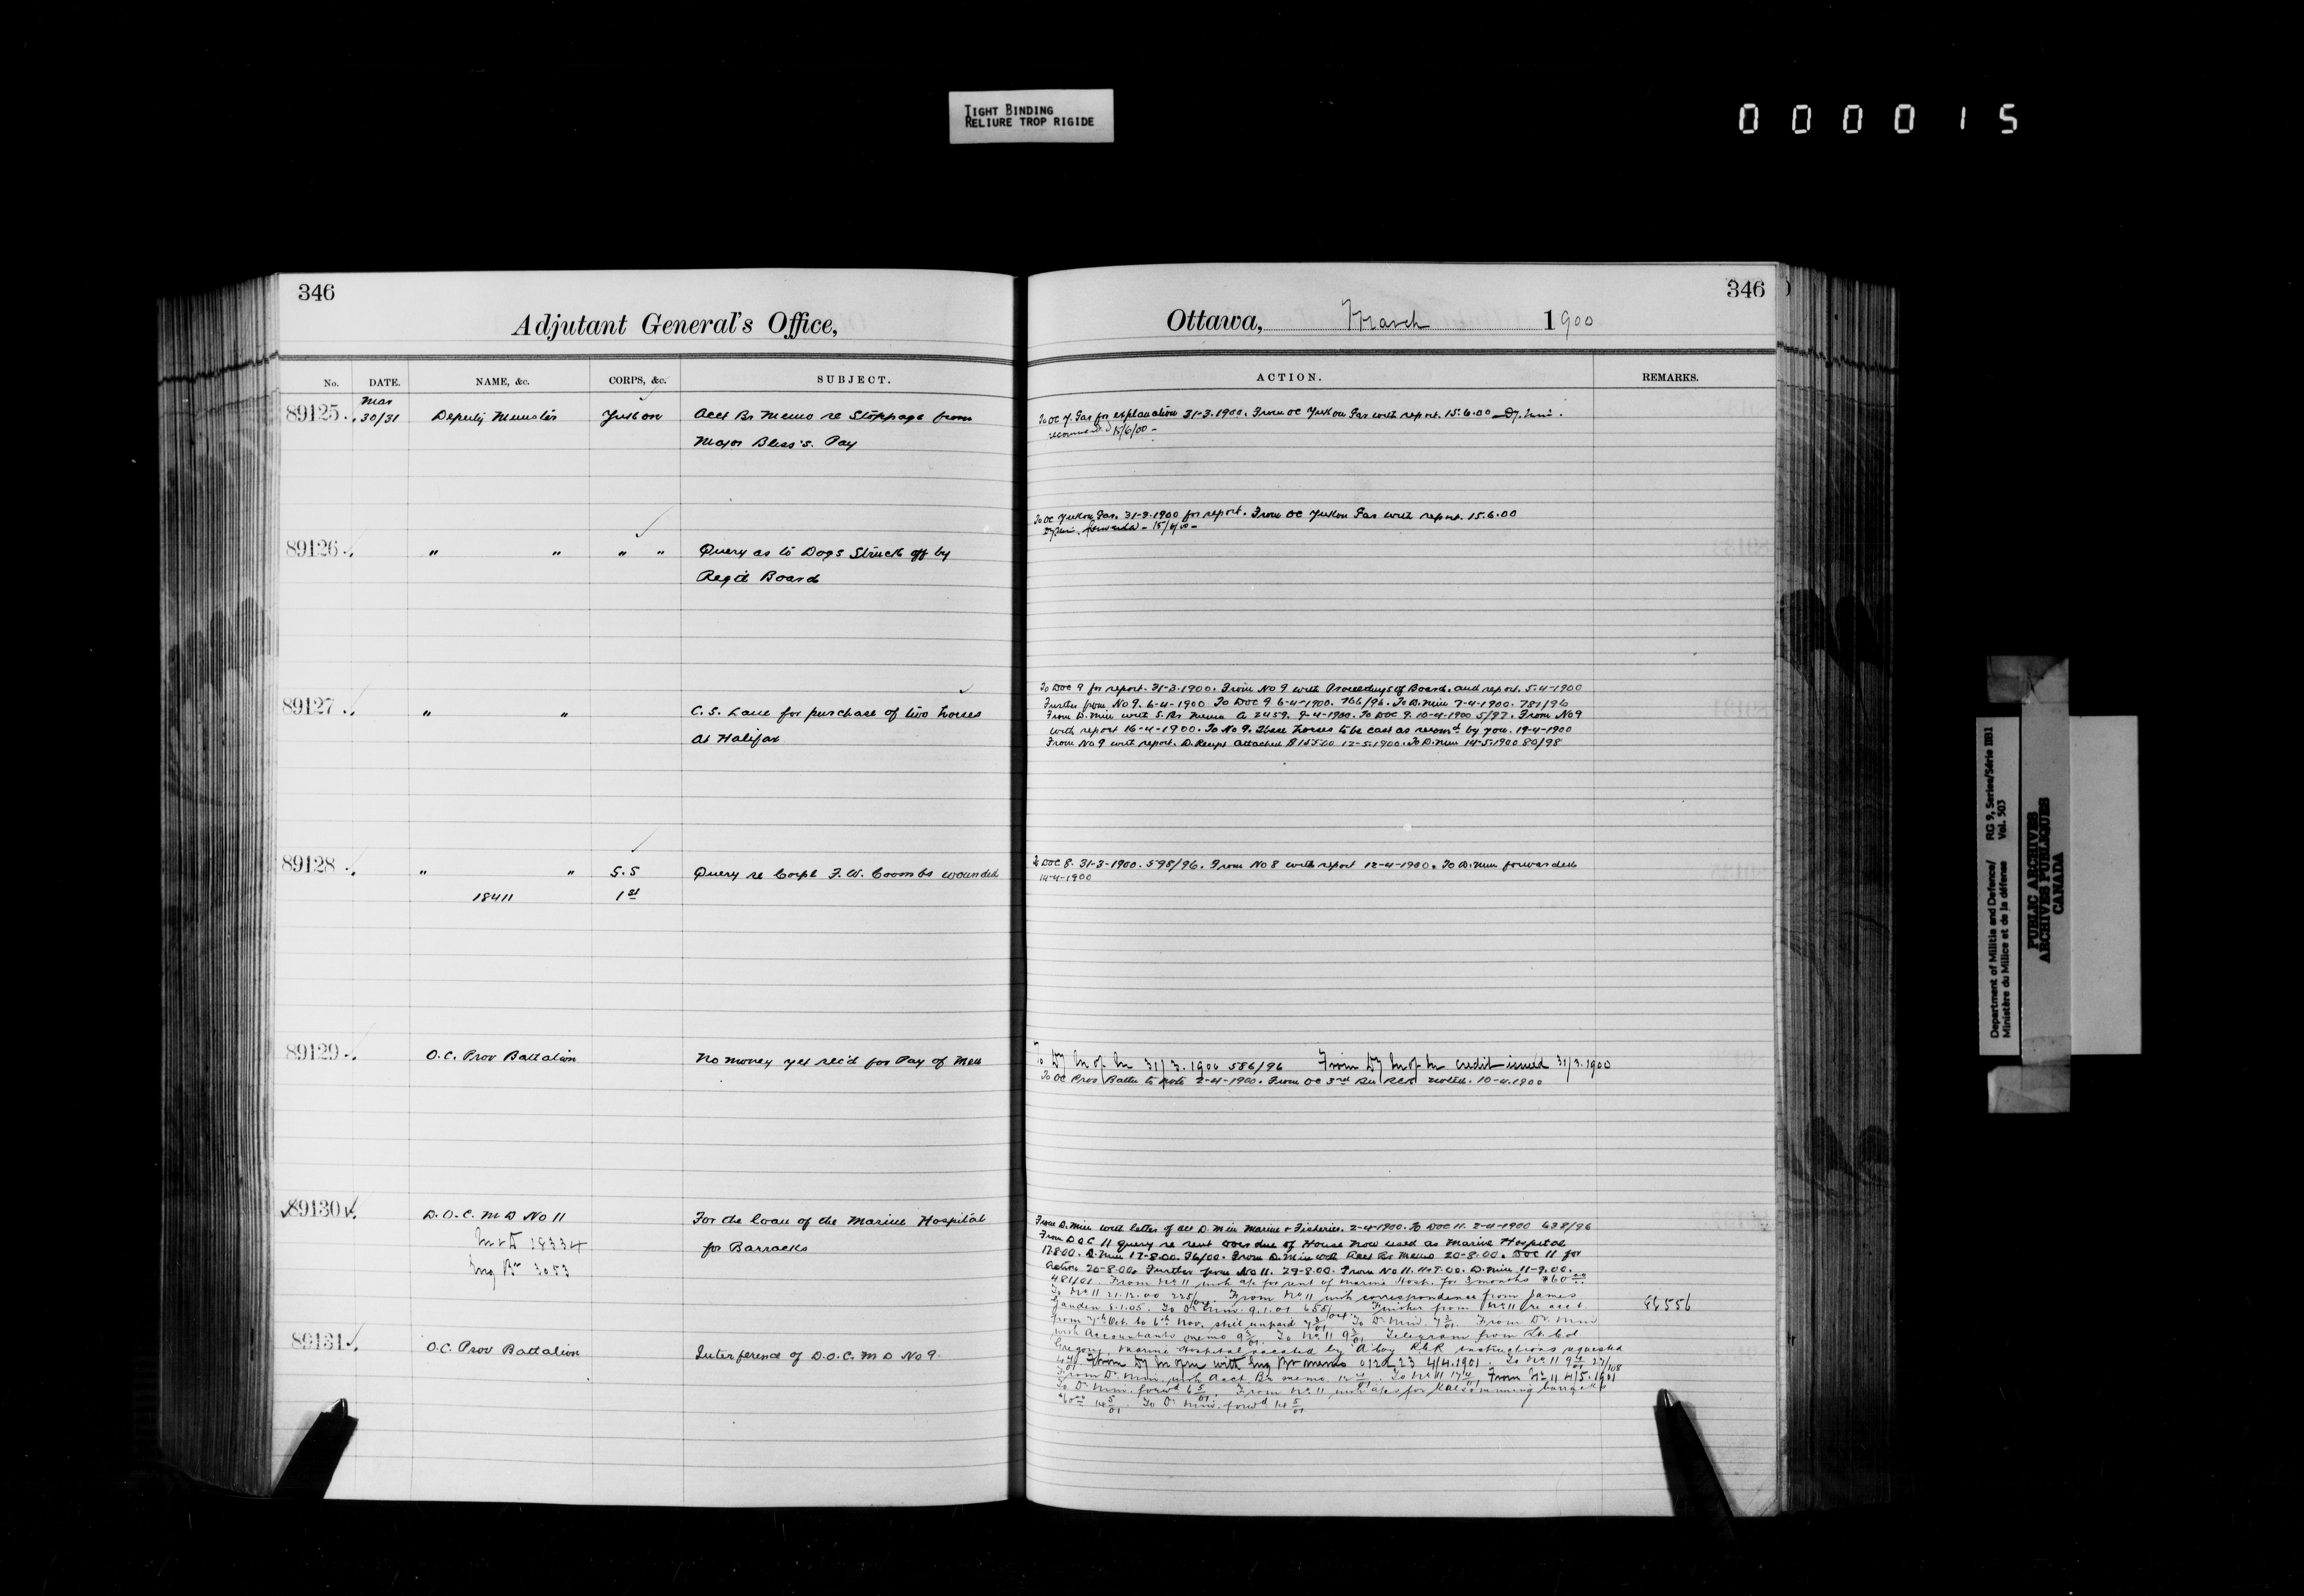 TIGHT BINDING
RELIURE TROP RIGIDE
000015
346
Adjutant General's Office,
346
Ottawa, March 1900
No. DATE. NAME, &c. CORPS, &c. SUBJECT.
ACTION. REMARKS.
Mar
89125 30/31 Deputy Minister Yukon Acct Br Memo re Stoppage from
Major Bliss's. Pay
To OC Y. Far for explanation 31-3.1900. From OC Yukon Far with report. 15.6.00
15/6/00 -
89126 " " " " Query as to Dogs Struck off by
Reg'd Board
To OC Yukon Far. 31-3-1900 for report. From OC Yukon Far with report. 15.6.00
forwarded - 15/6/00 -
89127 " " C. S. Lane for purchase of two horses
at Halifax
To DOC 9 for report. 31-3-1900. From No 9 with Proceedings of Board. and report. 5-4-1900
Further from No 9. 6-4-1900 To DOC 9 6-4-1900. 766/96. To D. Min 7-4-1900. 781/96
From D. Min with S. Br Memo A 2459. 9-4-1900. To DOC 9. 10-4-1900 5/97. From No 9
with report 16-4-1900. To No 9. These horses to be cast as recomd by you. 19-4-1900
From No 9 with report. D. Receipt attached 12-5-1900. To D. Min 14-5-1900 80/98
89128 " " S.S Query re Corpl F. W. Coombs wounded
18411 1st
To DOC 8. 31-3-1900. 598/96. From No 8 with report 12-4-1900. To D. Min forwarded
14-4-1900
89129 O.C. Prov Battalion No money yet rec'd for Pay of Men
To Dy M of M 31/3.1900 586/96 From Dy M of M credit issued 31/3.1900
To OC Prov Battn to note 2-4-1900. From OC 3rd Bn RCR noted. 10-4.1900
89130 D.O.C. M D No 11 For the loan of the Marine Hospital
for Barracks
18334
Eng Br 3053
From D. Min with letter of D. Min Marine & Fisheries. 2-4-1900. To DOC 11. 2-4-1900 638/96
From DOC 11 query re rent over due of House now used as Marine Hospital
17.8.00. D. Min 17-8.00. 76/00. From D. Min with Acct Br Memo 20-8.00. DOC 11 for
action 20-8.00. Further from No 11. 29-8.00. From No 11. D. Min 11-9.00.
481/01. From No 11 with a/c for rent of Marine Hosp. for 3 months $60.00
To No 11 21.12.00 From No 11 with correspondence from James
To Dr Min. 9.1.01 Further from No 11 re acct
from 7th Oct. to 6th Nov. still unpaid To Dr Min From Dr. Min
with Accountants memo To No 11 Telegram from Lt. Col
Gregory, Marine Hospital vacated by A Coy RGR instructions requested
From Dy M of M with Eng Br memo 4/4.1901. To No 11
From Dr. Min. with Acct. Br memo To No 11 From No 11 4/5.1901
To Dr Min. forwd From No 11 with a/cs for Kalsomining barracks
To Dr Min. forwd
89131 O.C. Prov Battalion Interference of D.O.C. M D No 9
Department of Militia and Defence/ RG 9, Series/Série IIB1
Ministère du Milice et de la défense Vol. 503
PUBLIC ARCHIVES
ARCHIVES PUBLIQUES
CANADA